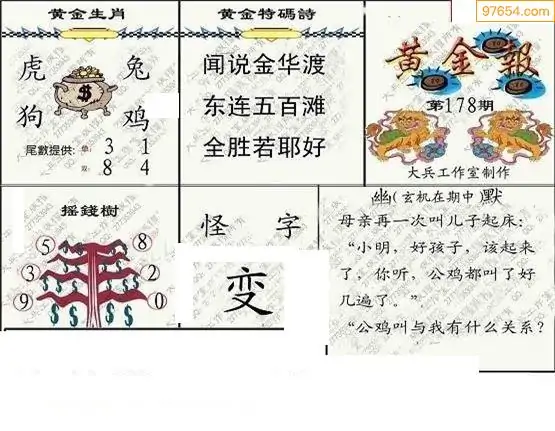 97654.com
黄金生肖
虎 兔
狗 鸡
尾數提供: 单 3 1
双 8 4
黄金特碼詩
闻说金华渡
东连五百滩
全胜若耶好
黄金報
第178期
大兵工作室制作
摇錢樹
5 8
3 2
9 0
怪 字
变
幽(玄机在期中)默
母亲再一次叫儿子起床:
“小明, 好孩子, 该起来
了, 你听, 公鸡都叫了好
几遍了。”
“公鸡叫与我有什么关系?